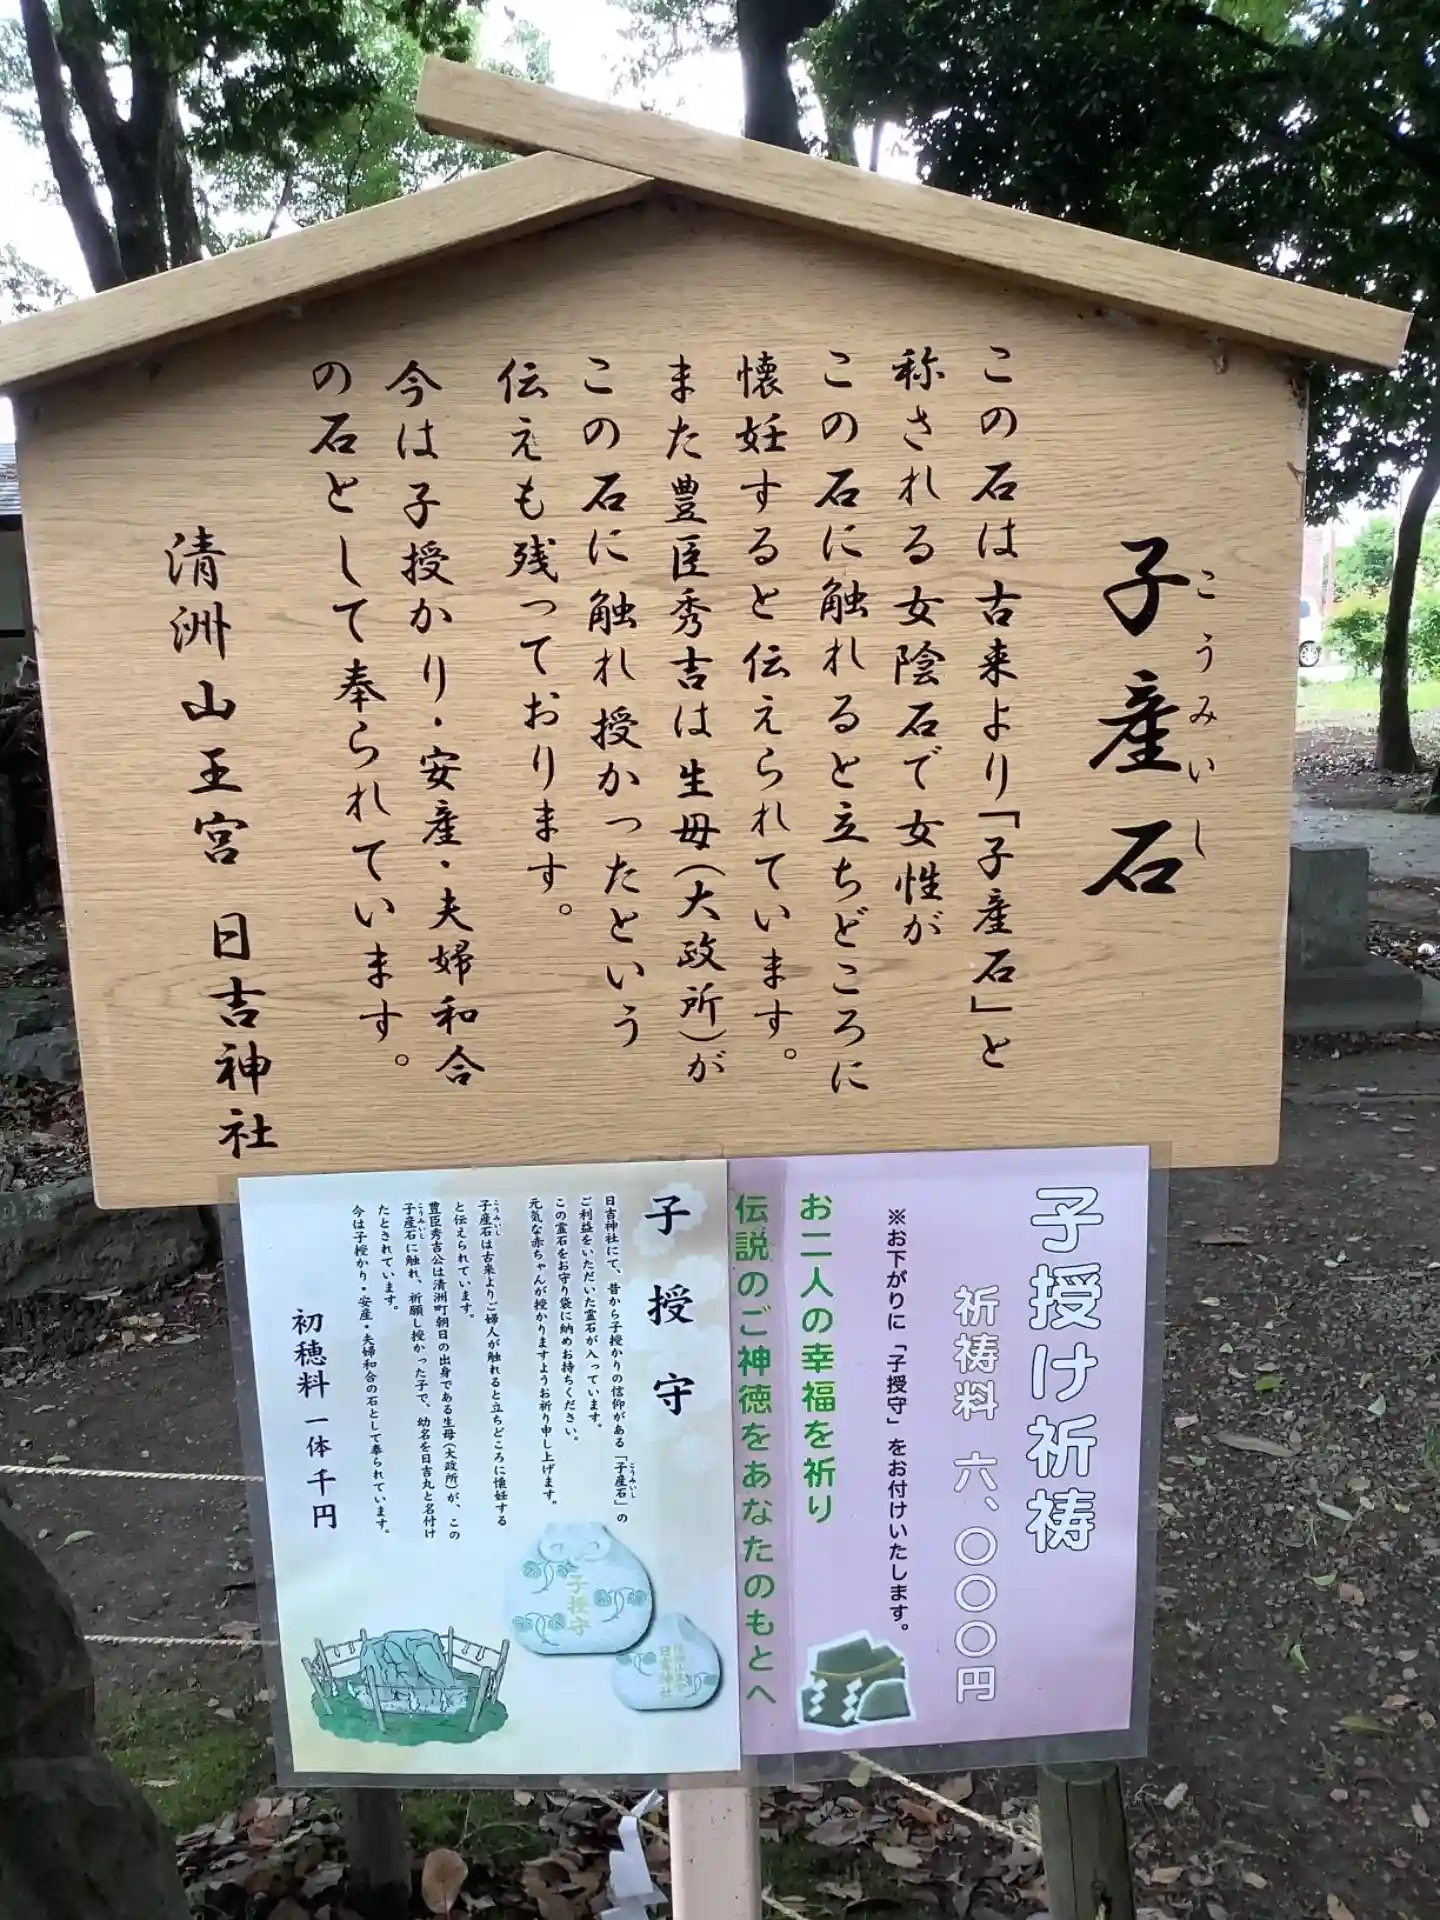 子産石
こうみいし
この石は古来より「子産石」と
称される女陰石で女性が
この石に触れると立ちどころに
懐妊すると伝えられています。
また豊臣秀吉は生母(大政所)が
この石に触れ授かったという
伝えも残っております。
今は子授かり・安産・夫婦和合
の石として奉られています。
清洲山王宮 日吉神社
子授け祈祷
祈祷料 六、〇〇〇円
※お下がりに「子授守」をお付けいたします。
お二人の幸福を祈り
伝説のご神徳をあなたのもとへ
子授守
日吉神社にて、昔から子授かりの信仰がある「子産石」の
こうみいし
ご利益をいただいた霊石が入っています。
この霊石をお守り袋に納めお持ちください。
元気な赤ちゃんが授かりますようお祈り申し上げます。
子産石は古来よりご婦人が触れると立ちどころに懐妊する
こうみいし
と伝えられています。
豊臣秀吉公は清洲町朝日の出身である生母(大政所)が、この
子産石に触れ、祈願し授かった子で、幼名を日吉丸と名付け
こうみいし
たとされています。
今は子授かり・安産・夫婦和合の石として奉られています。
初穂料 一体千円
子授守
日吉神社